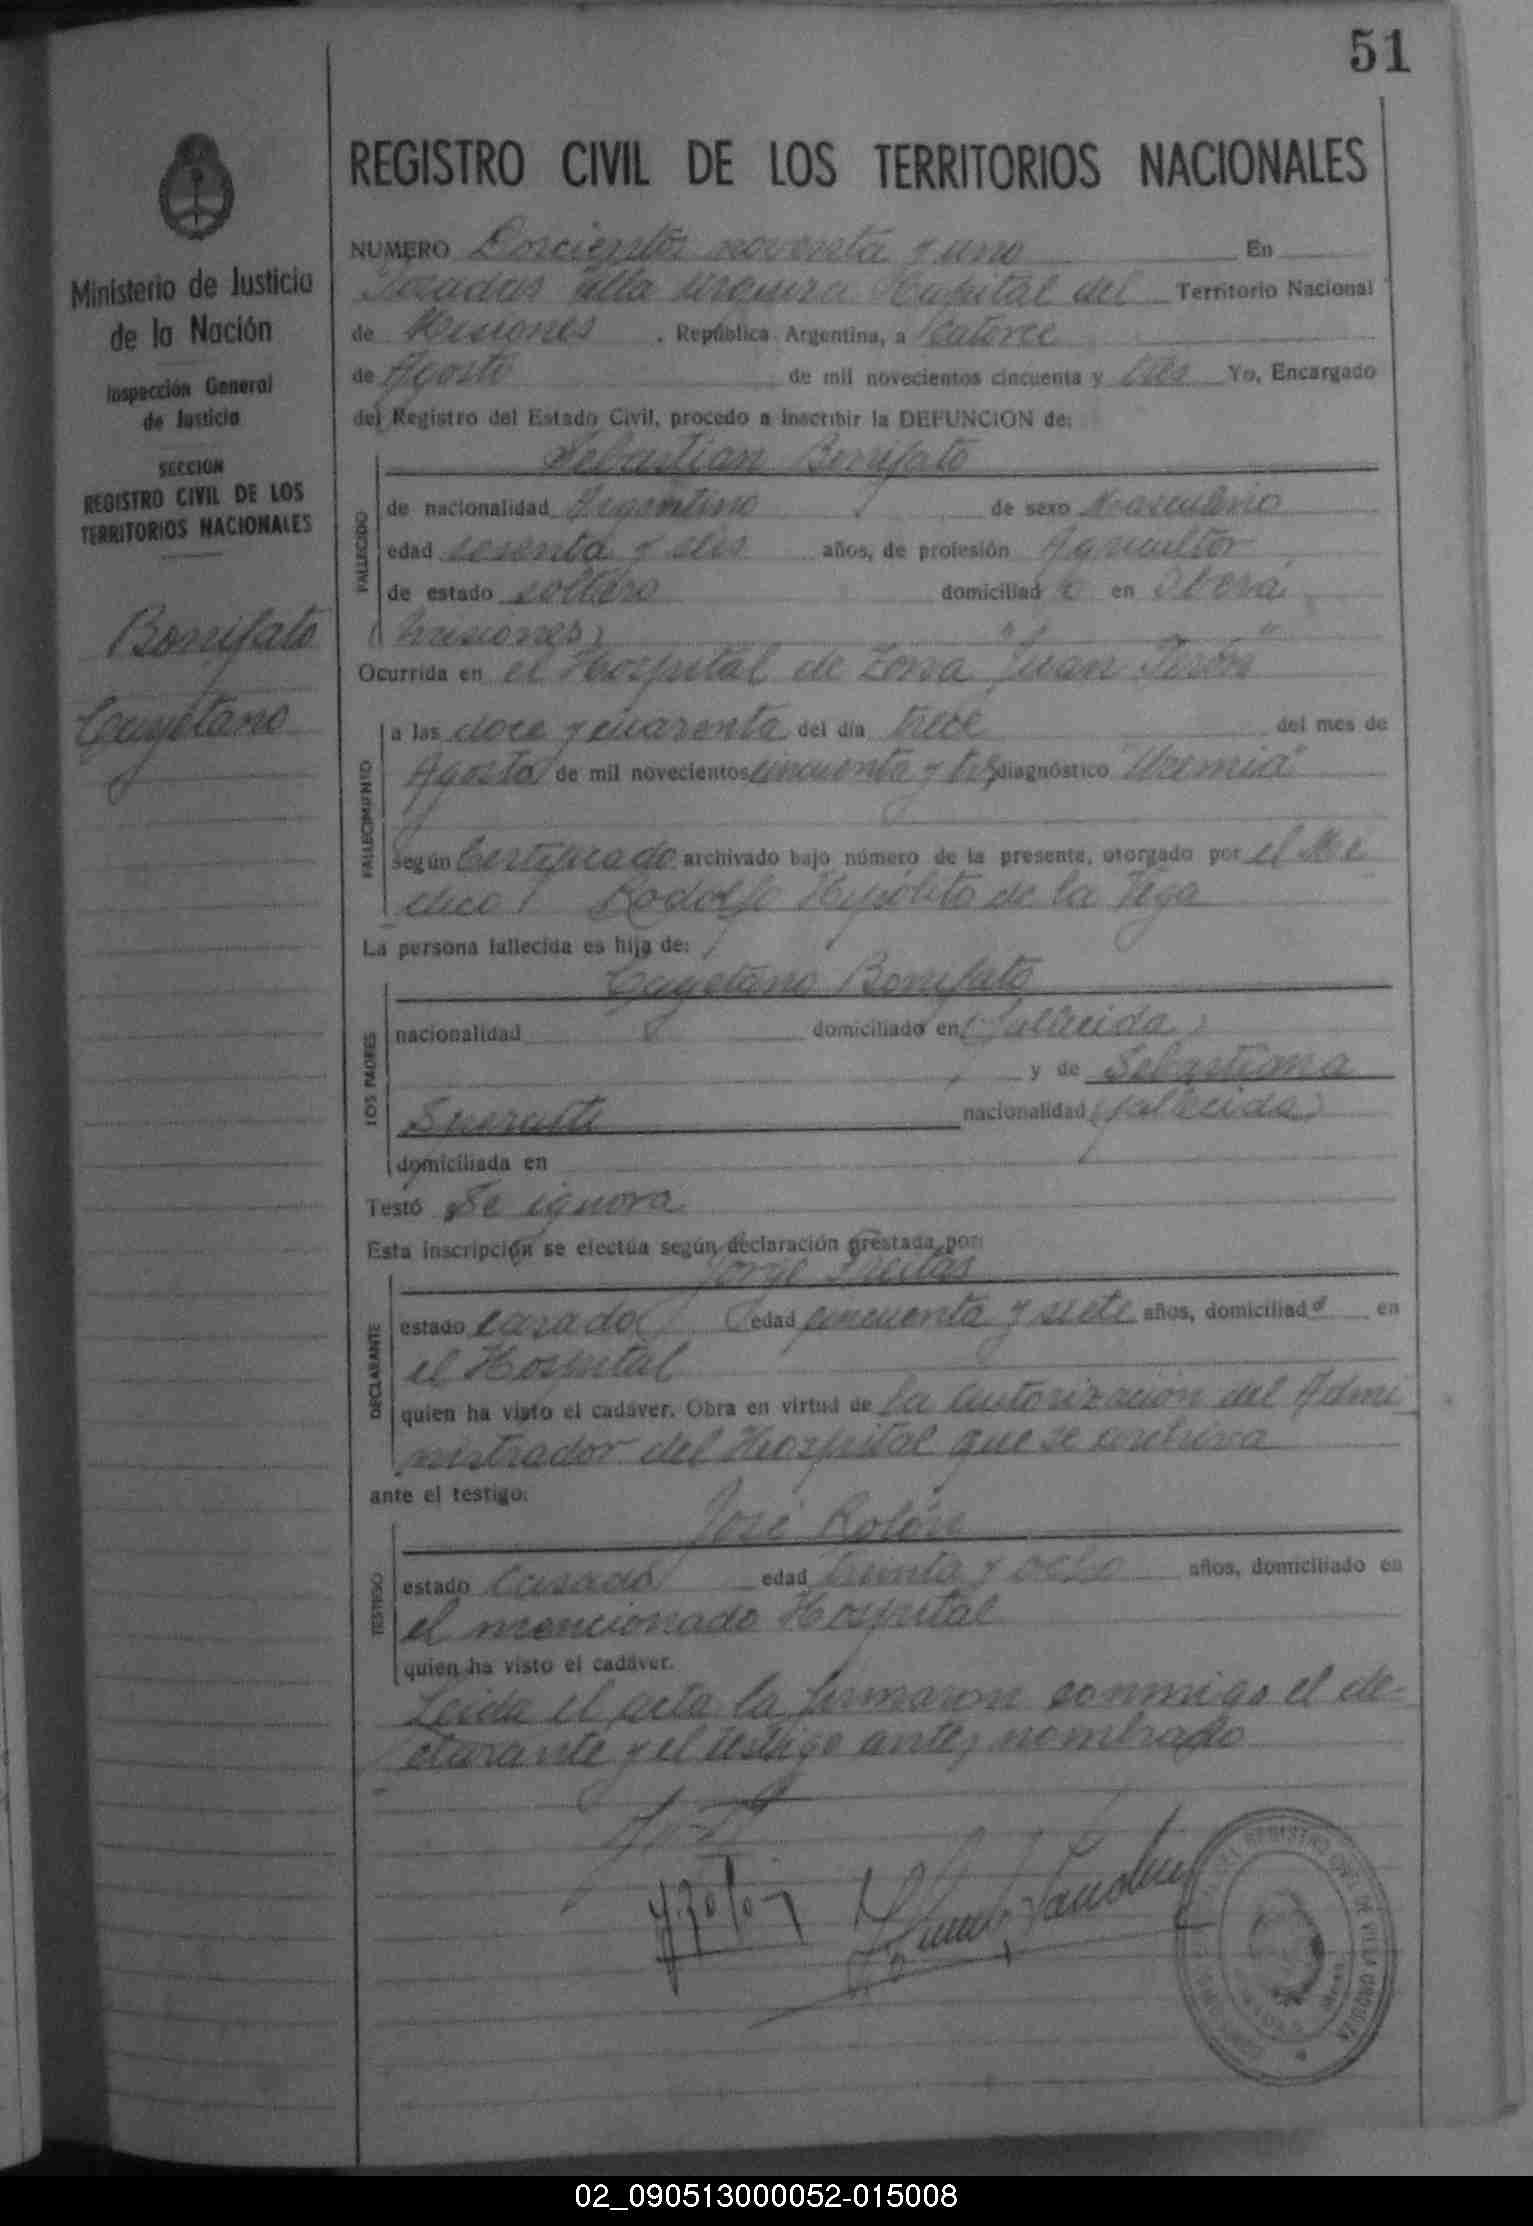 51
Ministerio de Justicia
de la Nación
Inspección General
de Justicia
SECCION
REGISTRO CIVIL DE LOS
TERRITORIOS NACIONALES
Bonifato
Cayetano
REGISTRO CIVIL DE LOS TERRITORIOS NACIONALES
NUMERO Doscientos noventa y uno En
Posadas Villa Urquiza Hospital del Territorio Nacional
de Misiones, República Argentina, a catorce
de Agosto de mil novecientos cincuenta y tres Yo, Encargado
del Registro del Estado Civil, procedo a inscribir la DEFUNCION de:
Sebastian Bonifato
FALLECIDO
de nacionalidad Argentino de sexo Masculino
edad sesenta y seis años, de profesión Agricultor
de estado soltero domiciliado en Oberá
(Misiones)
Ocurrida en el Hospital de Zona "Juan Perón"
FALLECIMIENTO
a las doce y cuarenta del día trece del mes de
Agosto de mil novecientos cincuenta y tres diagnóstico "Uremia"
según Certificado archivado bajo número de la presente, otorgado por el Mé
dico Rodolfo Hipólito de la Vega
La persona fallecida es hija de:
Cayetano Bonifato
LOS PADRES
nacionalidad domiciliado en (fallecido)
y de Sebastiana
nacionalidad (fallecida)
domiciliada en
Testó Se ignora
Esta inscripción se efectúa según declaración prestada por:
Jorge Freitas
DECLARANTE
estado casado edad cincuenta y siete años, domiciliado en
el Hospital
quien ha visto el cadáver. Obra en virtud de la autorización del Admi
nistrador del Hospital que se archiva
ante el testigo:
José Rolón
TESTIGO
estado casado edad treinta y ocho años, domiciliado en
el mencionado Hospital
quien ha visto el cadáver.
Leida el acta la firmaron conmigo el de-
clarante y el testigo antes nombrado
REGISTRO CIVIL DE VILLA URQUIZA
02_090513000052-015008